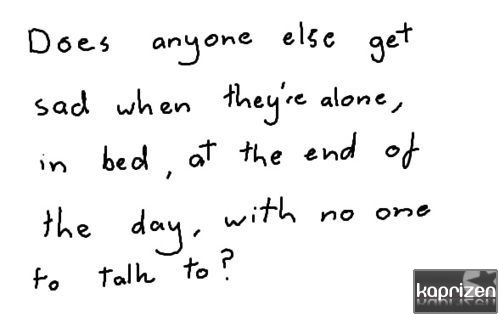 Does anyone else get
sad when they're alone,
in bed, at the end of
the day, with no one
to talk to?
kaprizen